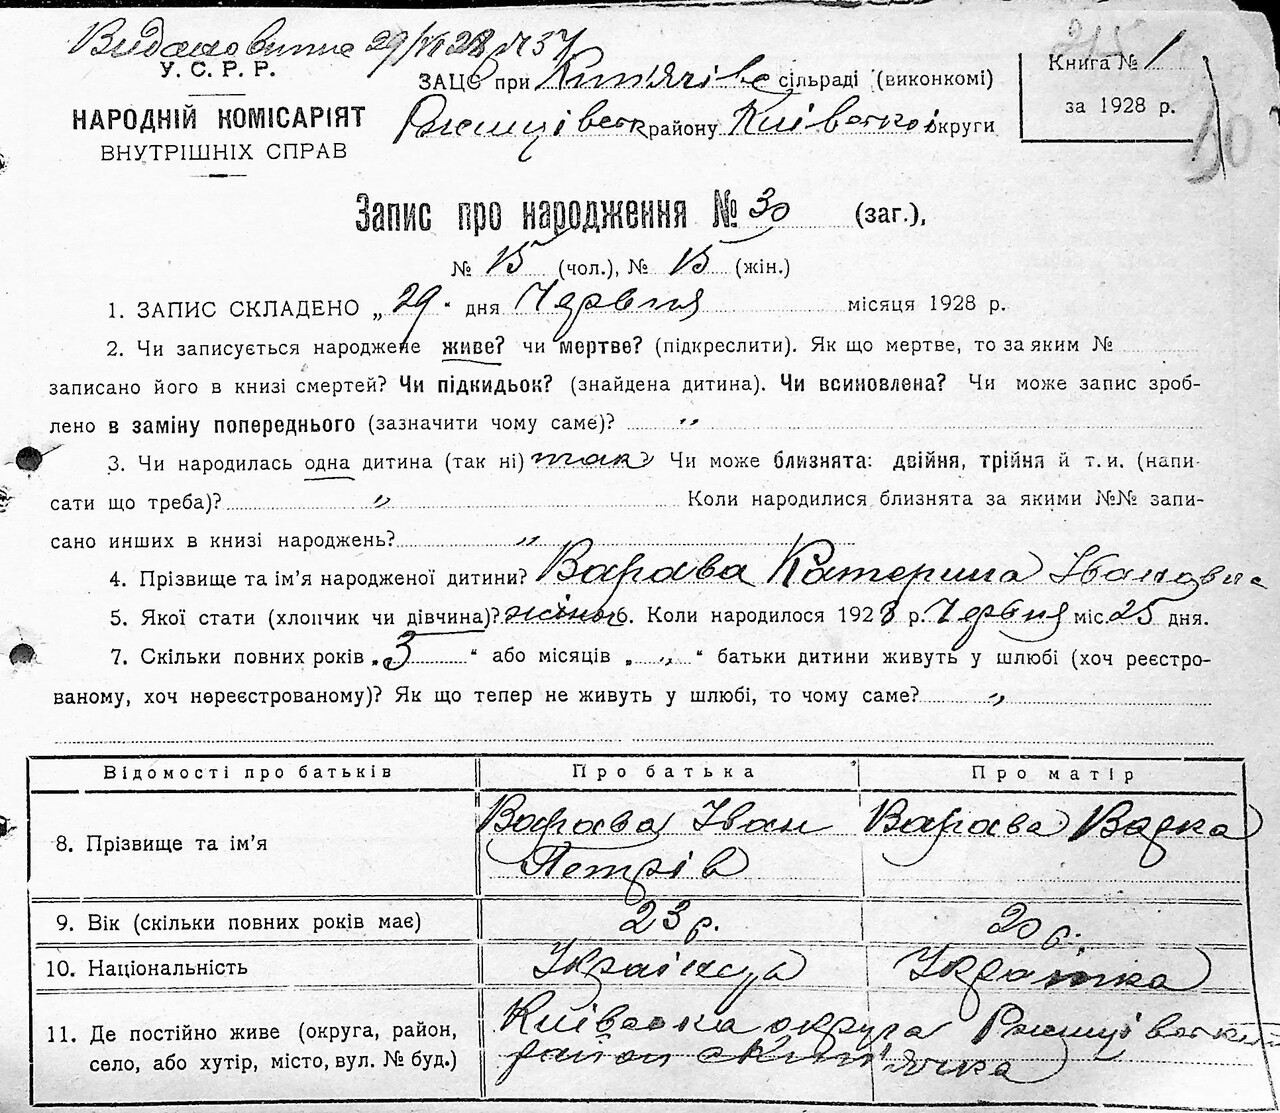 Видано витяг 29/VI 28 р № 37
У. С. Р. Р.
НАРОДНІЙ КОМІСАРІЯТ
ВНУТРІШНІХ СПРАВ
ЗАЦС при Кип'ячівс сільраді (виконкомі)
Ржищівськ району Київської округи
Книга № 1
за 1928 р.
Запис про народження № 30 (заг.),
№ 15 (чол.), № 15 (жін.)
1. ЗАПИС СКЛАДЕНО „29“ дня Червня місяця 1928 р.
2. Чи записується народжене живе? чи мертве? (підкреслити). Як що мертве, то за яким №
записано його в книзі смертей? Чи підкидьок? (знайдена дитина). Чи всиновлена? Чи може запис зроб-
лено в заміну попереднього (зазначити чому саме)? "
3. Чи народилась одна дитина (так ні) так Чи може близнята: двійня, трійня й т. и. (напи-
сати що треба)? " Коли народилися близнята за якими №№ запи-
сано инших в книзі народжень? "
4. Прізвище та ім'я народженої дитини? Варава Катерина Івановна
5. Якої стати (хлопчик чи дівчина)? жіноч 6. Коли народилося 1928 р. Червня міс. 25 дня.
7. Скільки повних років „3“ або місяців „ " “ батьки дитини живуть у шлюбі (хоч реєстро-
ваному, хоч нереєстрованому)? Як що тепер не живуть у шлюбі, то чому саме? "
Відомості про батьків Про батька Про матір
8. Прізвище та ім'я Варава Іван Петрів Варава Варка
9. Вік (скільки повних років має) 23 р. 20 р.
10. Національність Українця Українка
11. Де постійно живе (округа, район, Київська округа Ржищівський
село, або хутір, місто, вул. № буд.) район с Кип'ячка